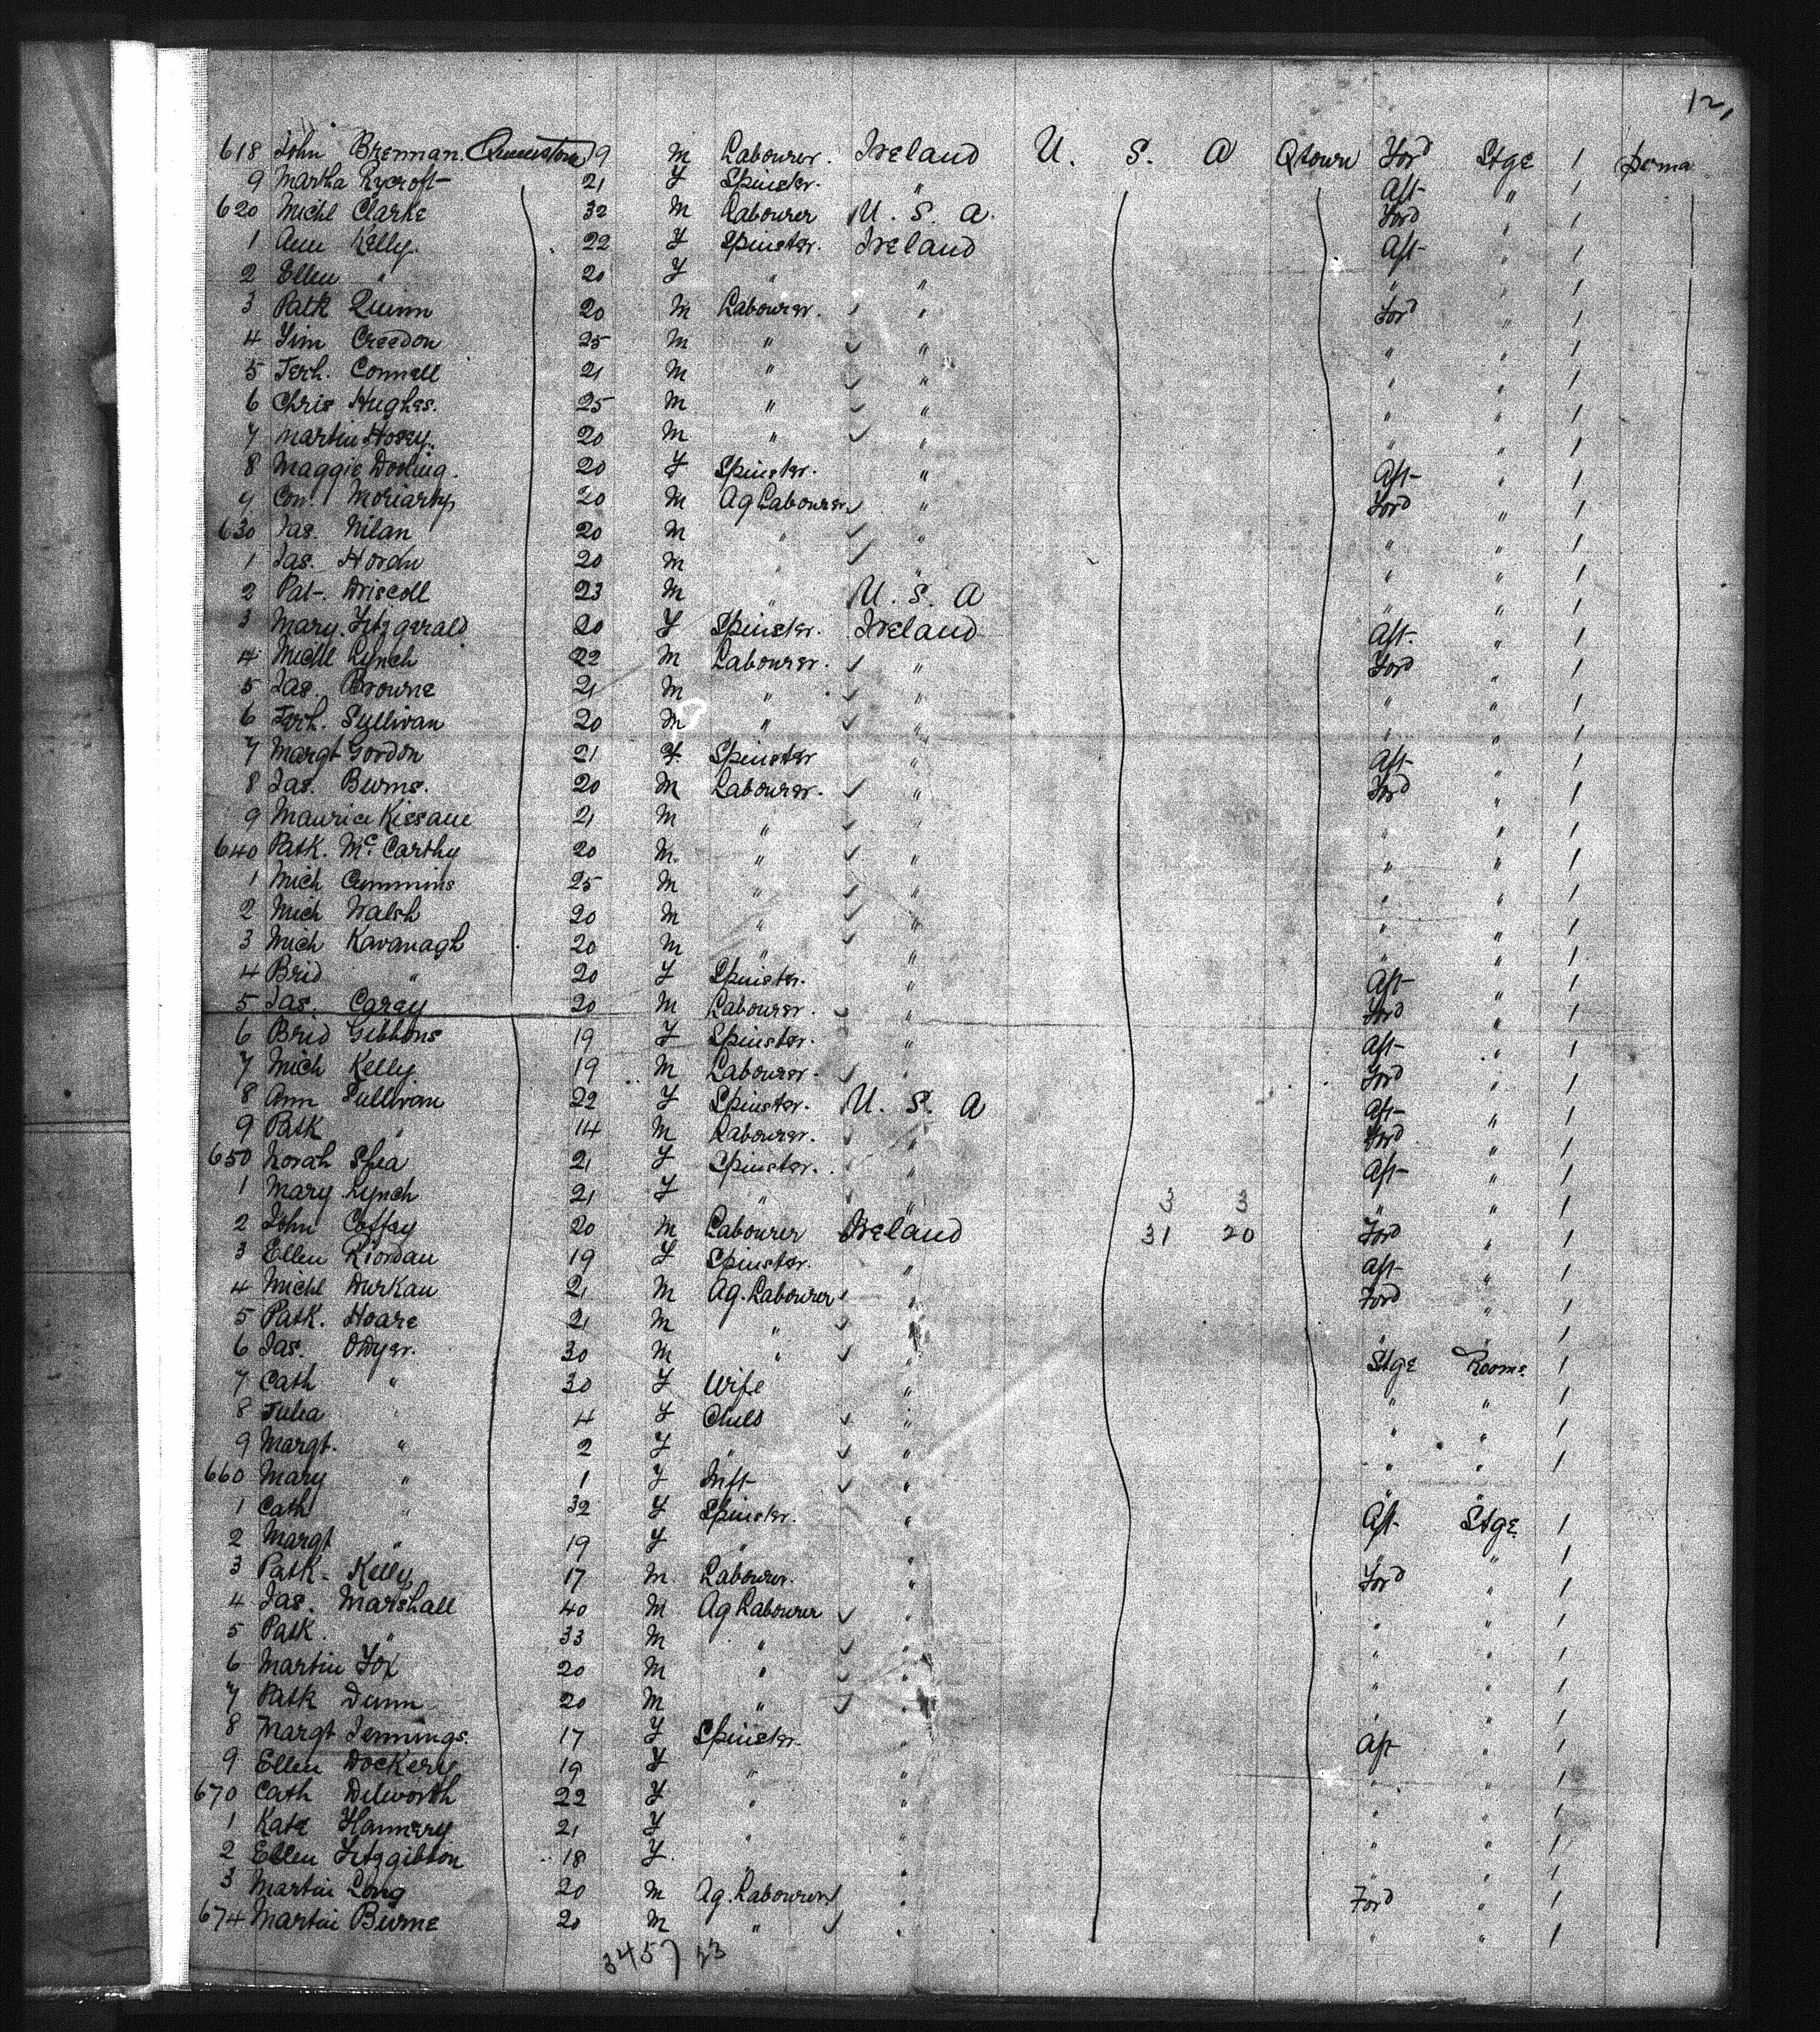 12,
618 John Brennan. Queenstown 19 M Labourer. Ireland U. S. A Qtown Ford Stge 1 Perma
9 Martha Rycroft 21 F Spinster. " Aft " 1
620 Michl Clarke 32 M Labourer U. S. A. Ford " 1
1 Ann Kelly. 22 F Spinster. Ireland Aft " 1
2 Ellen " 20 F " " " " 1
3 Patk Quinn 20 M Labourer. ✓ " Ford " 1
4 Tim Creedon 25 M " ✓ " " " 1
5 Jerh. Connell 21 M " ✓ " " " 1
6 Chris Hughes. 25 M " ✓ " " " 1
7 Martin Hosey. 20 M " ✓ " " " 1
8 Maggie Dooling. 20 F Spinster. " Aft " 1
9 Con. Moriarty 20 M Ag Labourer ✓ " Ford " 1
630 Jas. Nilan 20 M " ✓ " " " 1
1 Jas. Horan 20 M " ✓ " " " 1
2 Pat. Driscoll 23 M " U. S. A " " 1
3 Mary. Fitzgerald 20 F Spinster. Ireland Aft. " 1
4 Michl Lynch 22 M Labourer. ✓ " Ford " 1
5 Jas. Browne 21 M " ✓ " " " 1
6 Jerh. Sullivan 20 M " ✓ " " " 1
7 Margt Gordon 21 F Spinster " Aft " 1
8 Jas. Burns. 20 M Labourer. ✓ " Ford " 1
9 Maurice Kissane 21 M " ✓ " " " 1
640 Patk. Mc Carthy 20 M. " ✓ " " " 1
1 Mich Cummins 25 M " ✓ " " " 1
2 Mich Walsh 20 M " ✓ " " " 1
3 Mich Kavanagh 20 M " ✓ " " " 1
4 Brid " 20 F Spinster. " Aft " 1
5 Jas. Carey 20 M Labourer. ✓ " Ford " 1
6 Brid Gibbons 19 F Spinster. " Aft " 1
7 Mich Kelly 19 M Labourer. ✓ " Ford " 1
8 Ann Sullivan 22 F Spinster. U. S. A Aft " 1
9 Patk " 14 M Labourer. ✓ " Ford " 1
650 Norah Shea 21 F Spinster. ✓ " Aft " 1
1 Mary Lynch 21 F " ✓ " 3 3 " " 1
2 John Coffey 20 M Labourer Ireland 31 20 Ford " 1
3 Ellen Riordan 19 F Spinster. " Aft " 1
4 Michl Durkan 21 M Ag. Labourer ✓ " Ford " 1
5 Patk. Hoare 21 M " ✓ " " " 1
6 Jas. Odwyer. 30 M " ✓ " Stge Rooms 1
7 Cath " 30 F Wife " " " 1
8 Julia " 4 F Child ✓ " " " 1
9 Margt. " 2 F " ✓ " " " 1
660 Mary " 1 F Inft ✓ " " "
1 Cath " 32 F Spinster. " Aft Stge 1
2 Margt " 19 F " " " " 1
3 Patk. Kelly 17 M. Labourer. " Ford " 1
4 Jas. Marshall 40 M Ag Labourer ✓ " " " 1
5 Patk. " 33 M " ✓ " " " 1
6 Martin Fox 20 M " ✓ " " " 1
7 Patk Dunn 20 M " ✓ " " " 1
8 Margt Jennings. 17 F Spinster. " Aft " 1
9 Ellen Dockery 19 F " " " " 1
670 Cath Dilworth 22 F " " " " 1
1 Kate Flannery 21 F " " " " 1
2 Ellen Fitzgibbon 18 F. " " " " 1
3 Martin Long 20 M Ag. Labourer ✓ " Ford " 1
674 Martin Burne 20 M " ✓ " " " 1
3457 23